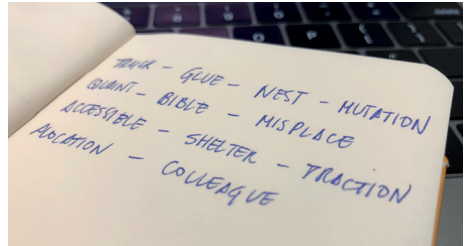 TRUCK - GLUE - NEST - MUTATION
QUAINT - BIBLE - MISPLACE
ACCESSIBLE - SHELTER - TRACTION
ALOCATION - COLLEAGUE